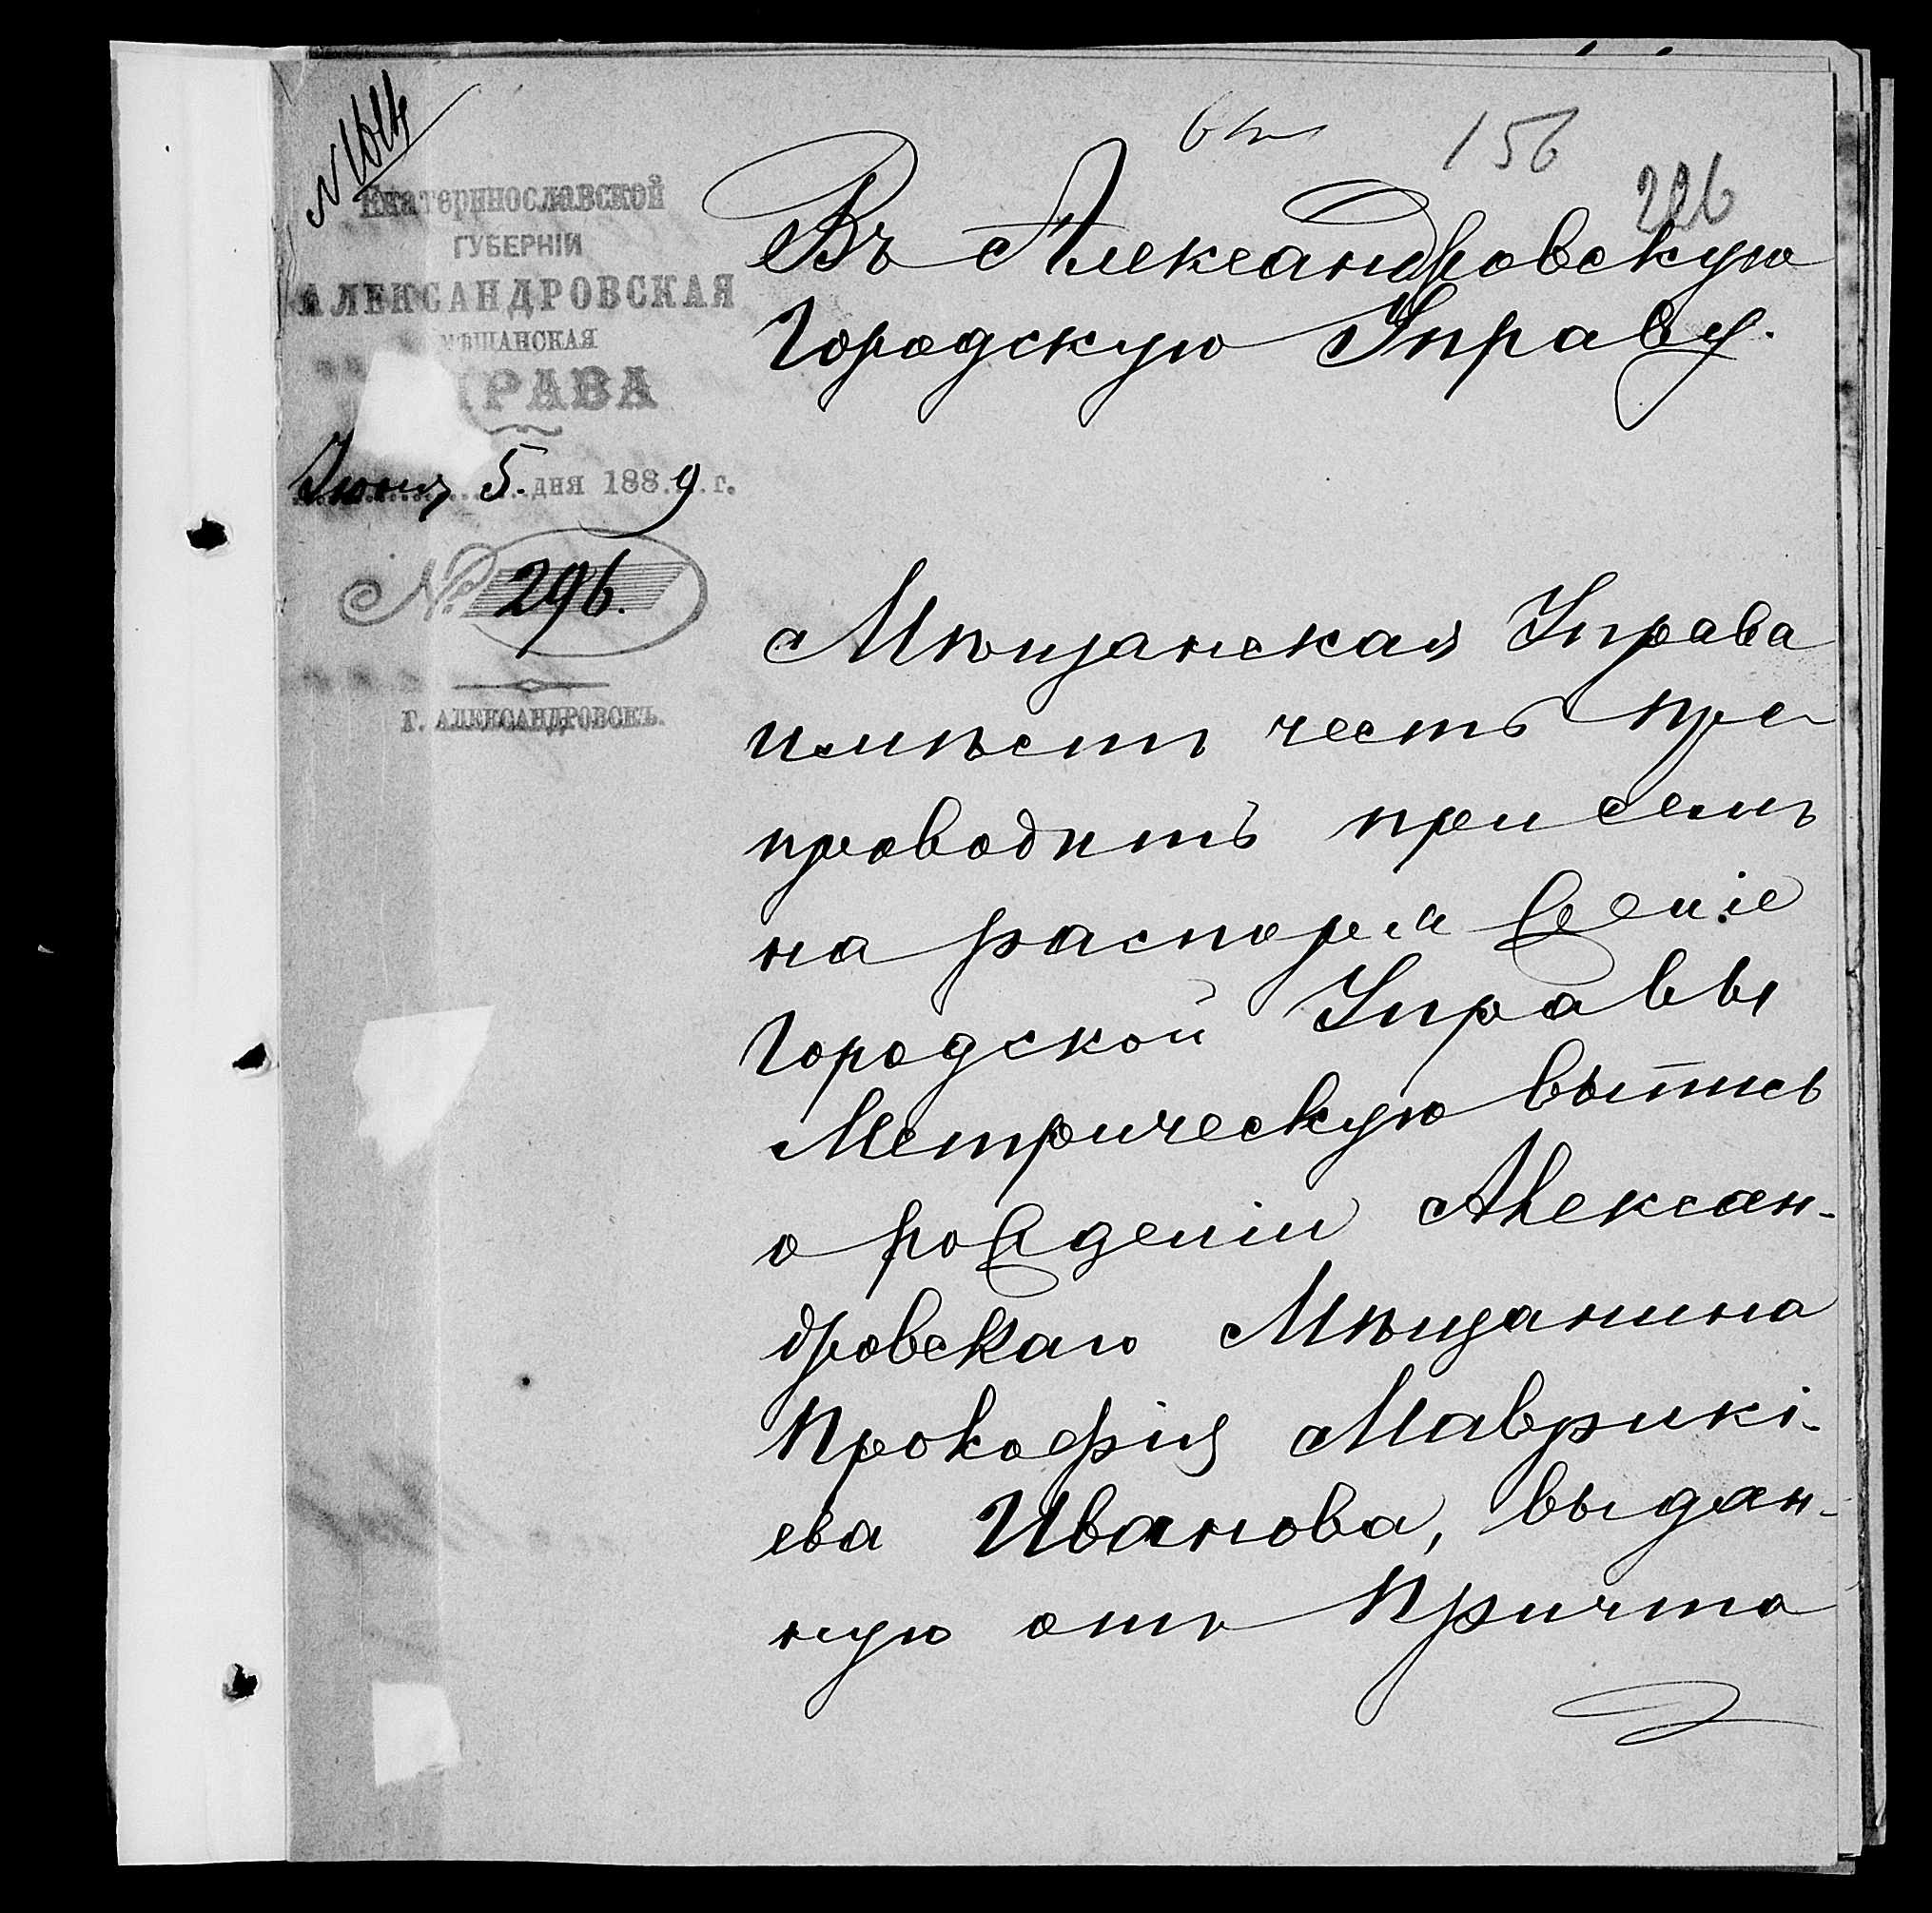 156
226
Екатеринославской
ГУБЕРНІИ
АЛЕКСАНДРОВСКАЯ
МѢЩАНСКАЯ
УПРАВА
Іюня 5. дня 1889 г.
№ 296.
Г. АЛЕКСАНДРОВСКЪ.
Въ Александровскую
Городскую Управу.
Мѣщанская Управа
имѣетъ честь пре
проводить при семъ
на распоряженіе
Городской Управы
Метрическую выпись
о рожденіи Алексан-
дровскаго Мѣщанина
Прокофія Маврикі-
ева Иванова, выдан-
ную отъ Причта